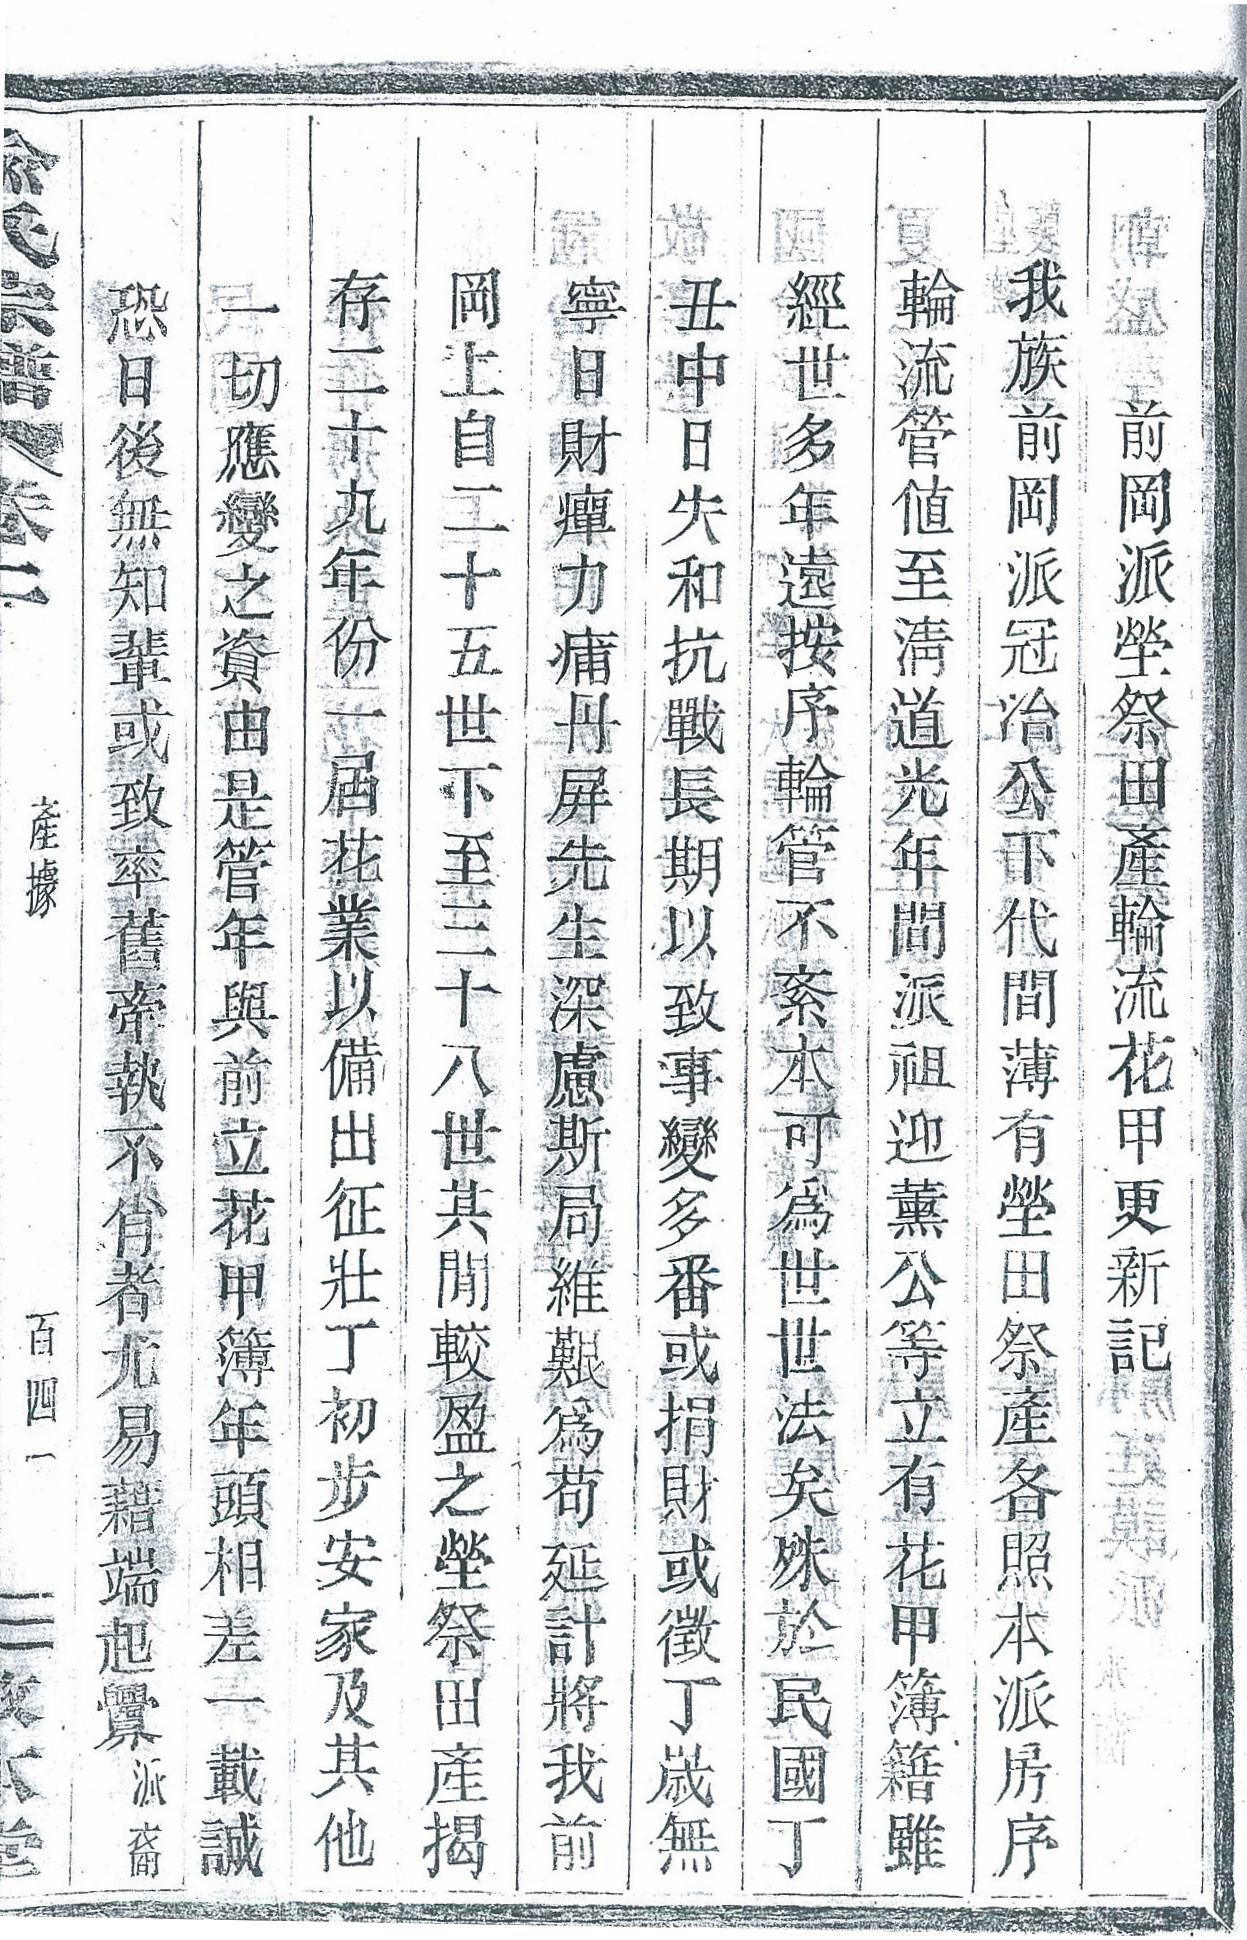 前岡派塋祭田產輪流花甲更新記
我族前岡派冠冶公下代間薄有塋田祭產各照本派房序
輪流管值至清道光年間派祖迎薰公等立有花甲簿籍雖
經世多年遠按序輪管不紊本可為世世法矣殊於民國丁
丑中日失和抗戰長期以致事變多番或捐財或徵丁歲無
寧日財癉力痡丹屏先生深慮斯局維艱為苟延計將我前
岡上自二十五世下至三十八世其間較盈之塋祭田產揭
存二十九年份一屆花業以備出征壯丁初步安家及其他
一切應變之資由是管年與前立花甲簿年頭相差一載誠
恐日後無知輩或致率舊帝執不肖者尤易藉端起釁派裔
俞氏宗譜卷二
產據
百四一
敦本堂